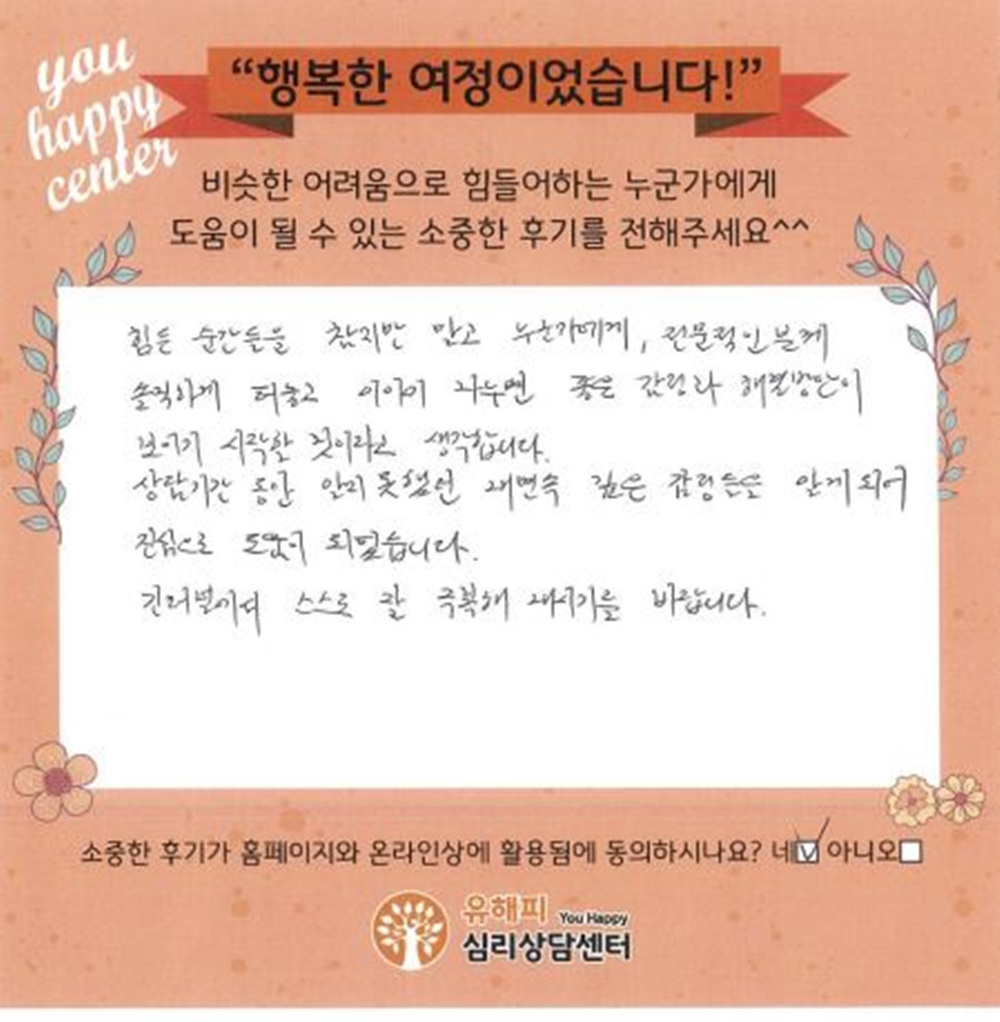 you
happy
center
“행복한 여정이었습니다!”
비슷한 어려움으로 힘들어하는 누군가에게
도움이 될 수 있는 소중한 후기를 전해주세요^^
힘든 순간들을 참지만 말고 누군가에게, 전문적인 분께
솔직하게 터놓고 이야기 나누면 좋은 감정과 해결방안이
보이기 시작할 것이라고 생각합니다.
상담기간 동안 알지 못했던 내면속 깊은 감정들을 알게 되어
진심으로 도움이 되었습니다.
스스로 잘 극복해 내시기를 바랍니다.
소중한 후기가 홈페이지와 온라인상에 활용됨에 동의하시나요? 네☑ 아니오☐
유해피 You Happy
심리상담센터